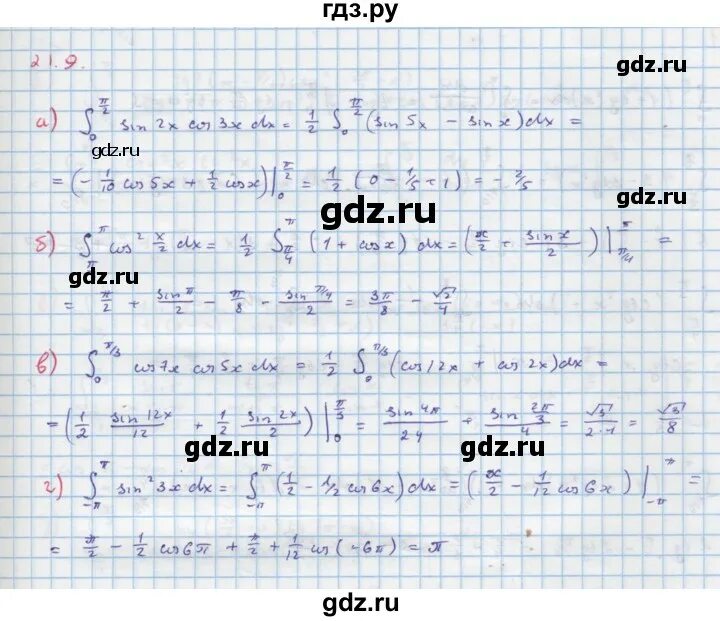 гдз.ру
21.9.
gdz.ru gdz.ru
а) ∫₀^{π/2} sin 2x cos 3x dx = 1/2 ∫₀^{π/2} (sin 5x - sin x) dx =
gdz.ru
= (-1/10 cos 5x + 1/2 cos x)|₀^{π/2} = 1/2 (0 - 1/5 - 1) = -2/5
gdz.ru
б) ∫_π^π cos² x/2 dx = 1/2 ∫_{π/4}^π (1 + cos x) dx = (x/2 + sin x/2)|_{π/4}^π =
gdz.ru gdz.ru
= π/2 + sin π/2 - π/8 - sin π/4/2 = 3π/8 - √2/4
в) ∫₀^{π/3} cos 7x cos 5x dx = 1/2 ∫₀^{π/3} (cos 12x + cos 2x) dx =
gdz.ru
= (1/2 sin 12x/12 + 1/2 sin 2x/2)|₀^{π/3} = sin 4π/24 + sin 2π/3/4 = √3/2·4 = √3/8
gdz.ru gdz.ru
г) ∫_{-π}^π sin² 3x dx = ∫_{-π}^π (1/2 - 1/2 cos 6x) dx = (x/2 - 1/12 cos 6x)|_{-π}^π =
= π/2 - 1/2 cos 6π + π/2 + 1/12 cos(-6π) = π
gdz.ru gdz.ru
gdz.ru